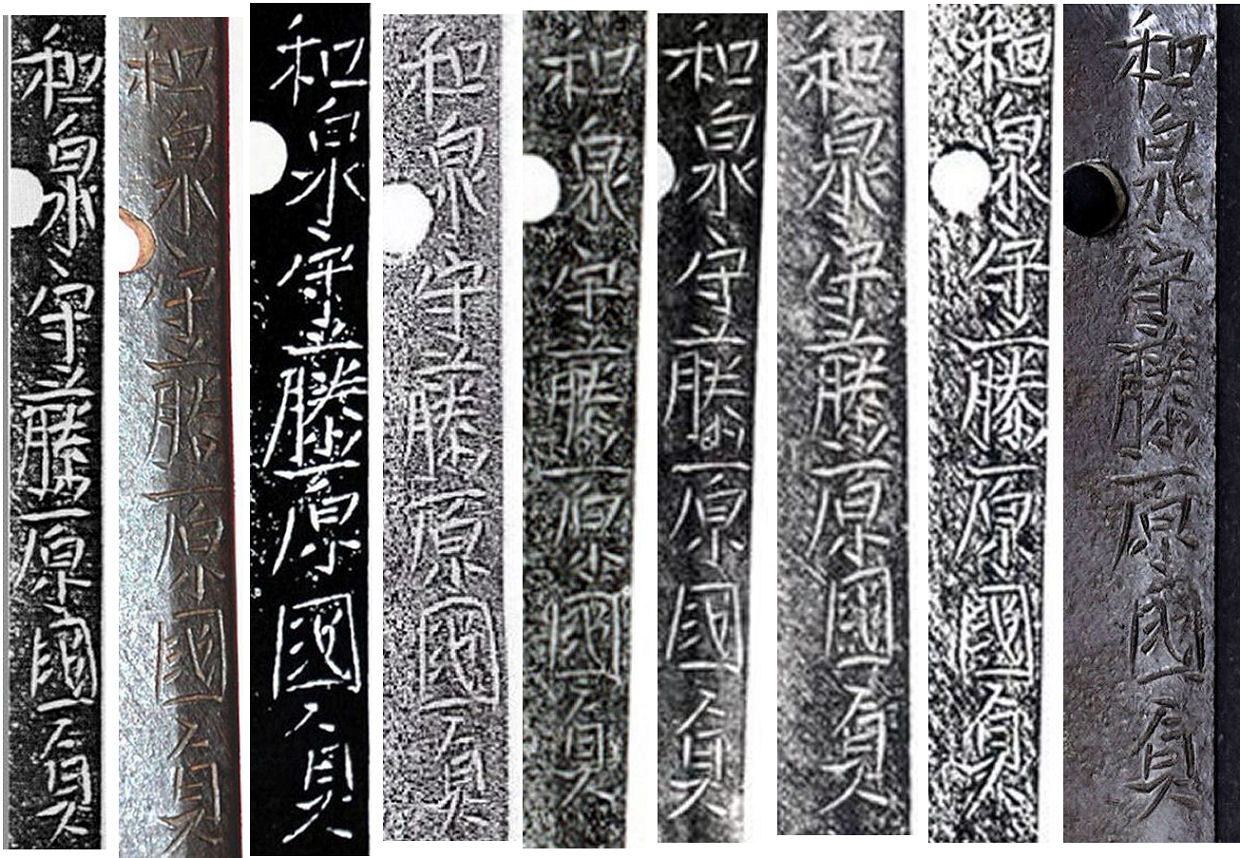 和泉守藤原國貞
和泉守藤原國貞
和泉守藤原國貞
和泉守藤原國貞
和泉守藤原國貞
和泉守藤原國貞
和泉守藤原國貞
和泉守藤原國貞
和泉守藤原國貞